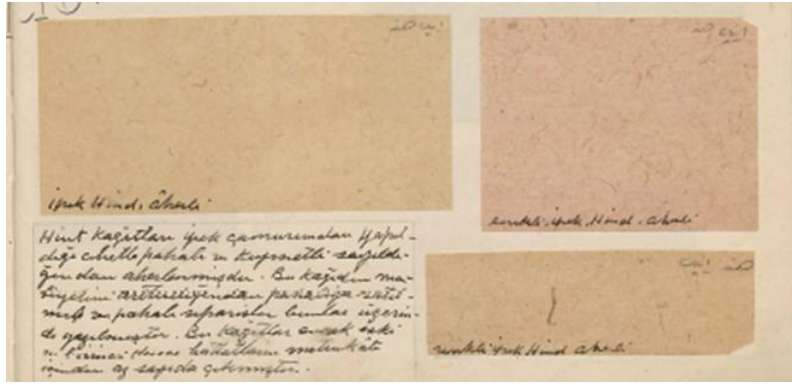 ipek Hind. âherli
renkli ipek Hind. âherli
Hint kağıtları ipek çamurundan yapıl-
dığı cihetle pahalı ve kıymetli sayıldı-
ğından aherlenmişdir. Bu kağıdın
arttırdığından pahalıya satıl-
mış ve pahalı siparişler bunlar üzerin-
de yazılmıştır. Bu kağıtlar ancak eski
ve birinci hattatların metrukâtı
içinden az sayıda çıkmıştır.
renkli ipek Hind âherli